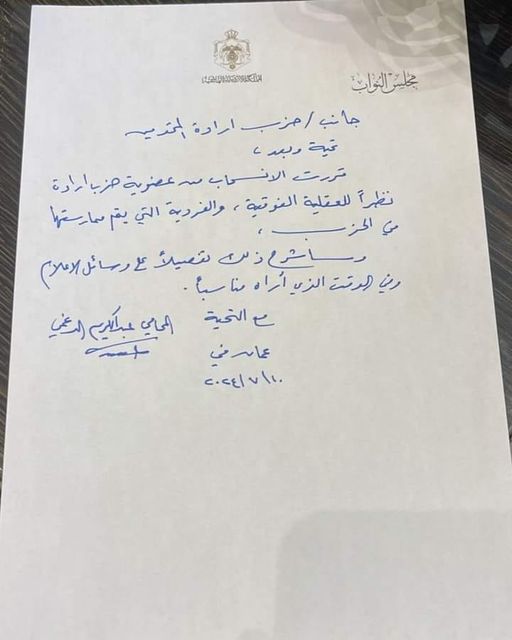 المملكة الأردنية الهاشمية
مجلس النواب
جانب / حزب ارادة المحترمين
تحية وبعد ،
قررت الانسحاب من عضوية حزب ارادة
نظراً للعقلية الفوقية ، والفردية التي يتم ممارستها
في الحزب ،
وسأشرح ذلك تفصيلاً على وسائل الاعلام
وفي الوقت الذي أراه مناسباً .
مع التحية
المحامي عبدالكريم الدغمي
عمان في
٢٠٢٤/٧/١٠